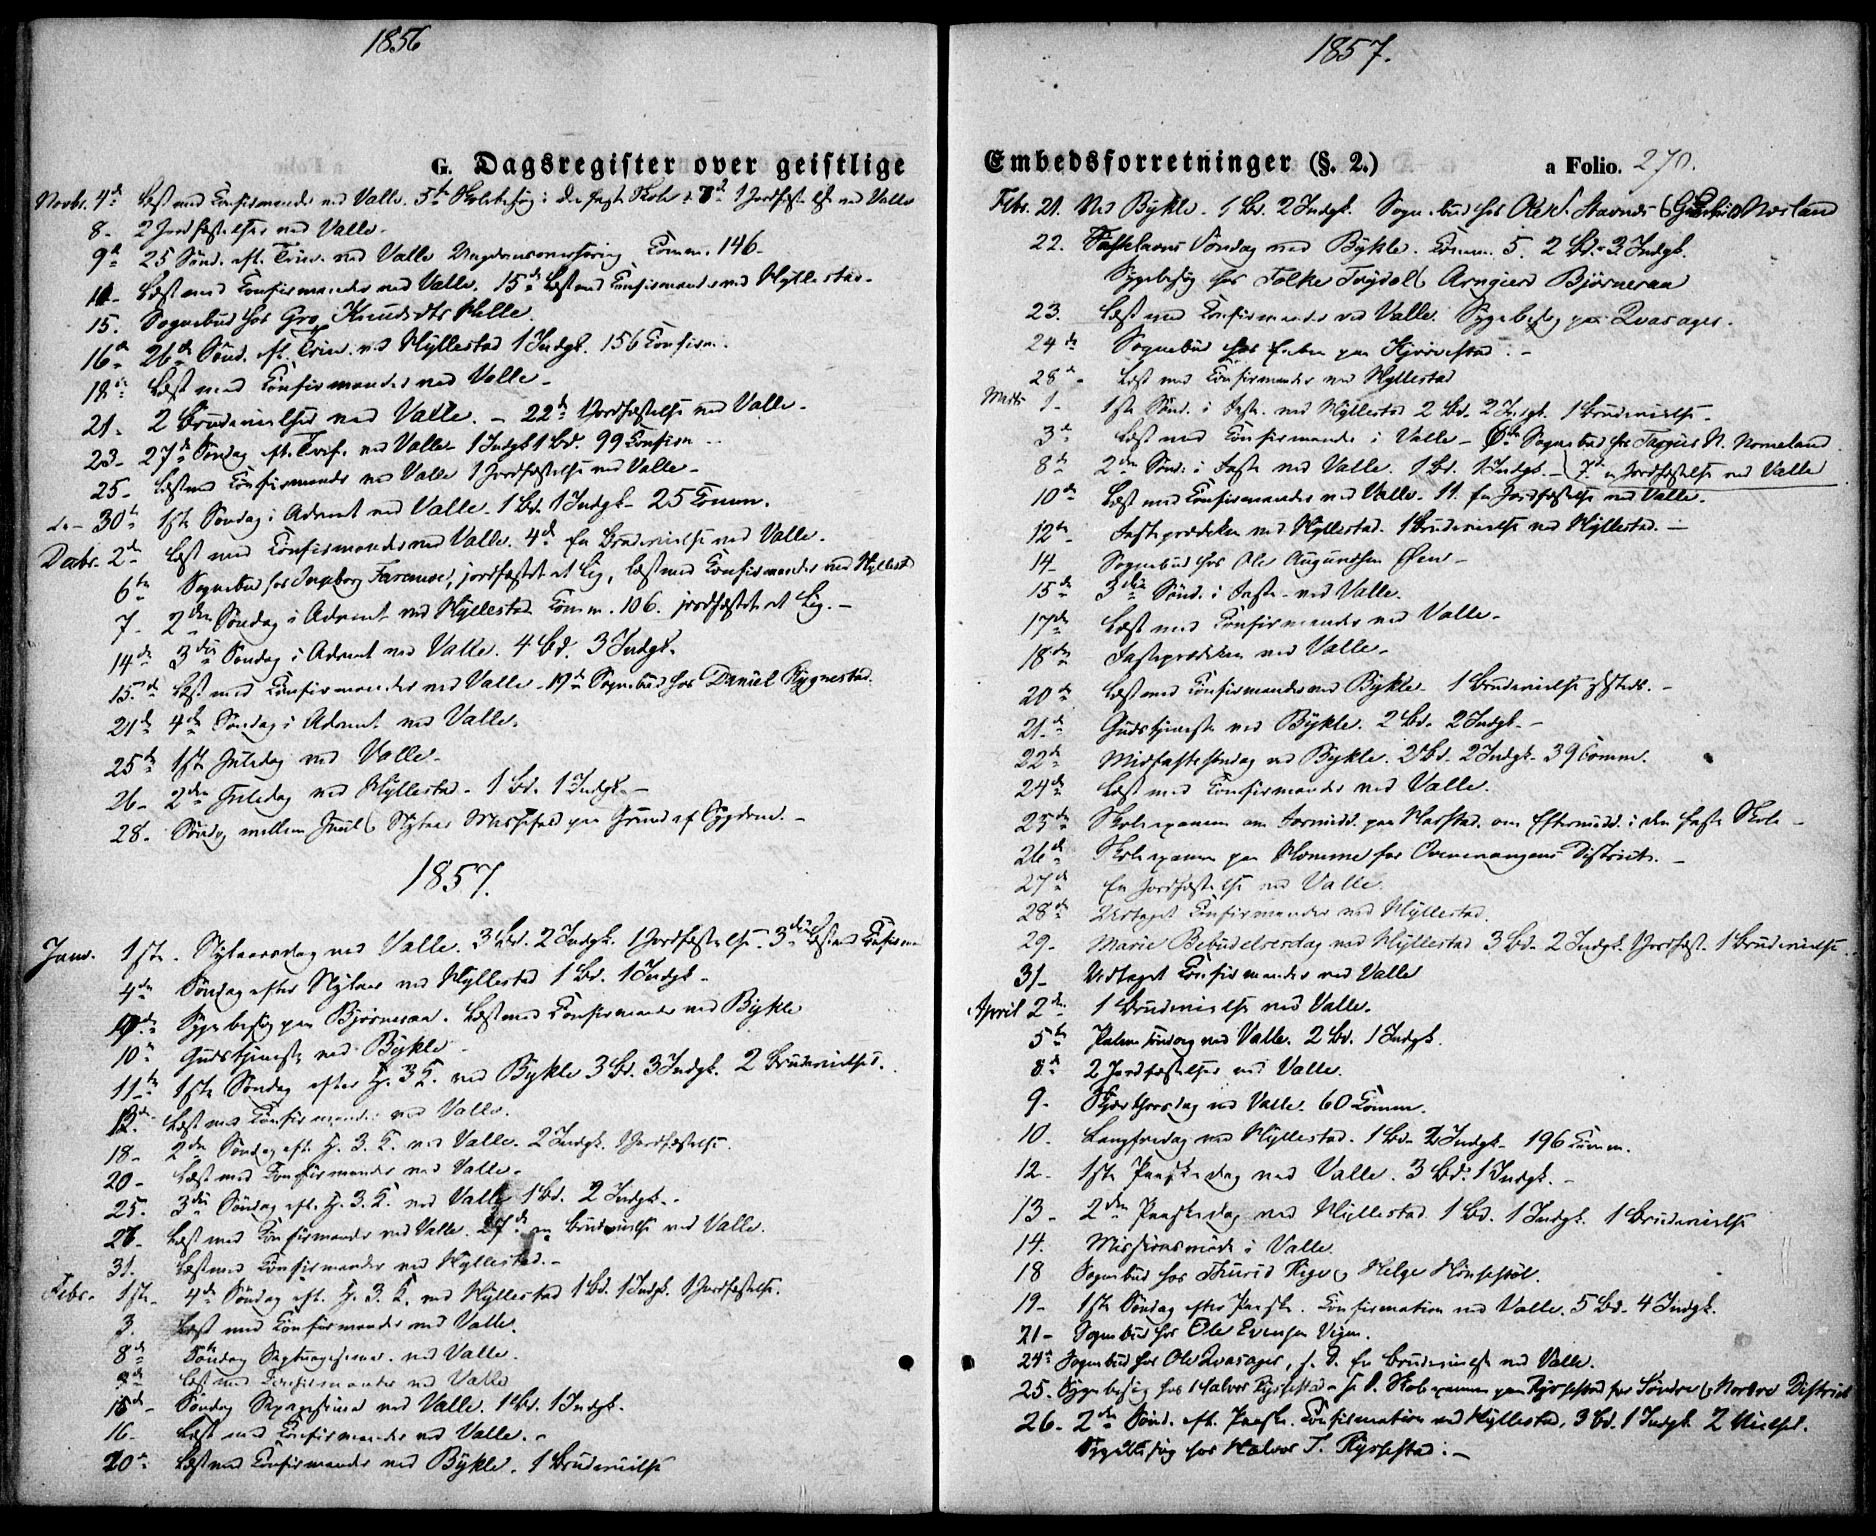 1856
G. Dagsregister over geistlige
Novbr. 4de Læst med Confirmander ved Valle. 5te Skolebesøg i den faste Skole. 1 Jordfæstelse ved Valle
8- 2 Jordfæstelser ved Valle.
9de 25 Sønd. eft. Trin. ved Valle Ungdomsoverhøring Comm. 146-
11- Læst med Confirmander ved Valle. 15de Læst med Confirmander ved Hyllestad-
15. Sognebud hos Gro Knudsdtr Helle.
16de 26de Sønd. eft. Trin. ved Hyllestad 1 Indgk. 156
18de Læst med Confirmander ved Valle-
21- 2 Brudevielser ved Valle. - 22de Jordfæstelse ved Valle-
23- 27de Søndag eft. Tref. ved Valle 1 Indgk 1 Bd. 99
25- Læst med Confirmander ved Valle 1 Jordfæstelse ved Valle-
30te 1ste Søndag i Advent ved Valle. 1 Bd. 1 Indgk- 25 Comm.
Decbr. 2den Læst med Confirmander ved Valle. 4de En Brudevielse ved Valle.
6te Sognebud hos Ingeborg jordfæstet et Lig, læst med Confirmander ved Hyllestad
7- 2den Søndag i Advent ved Hyllestad Comm. 106. jordfæstet et Lig.-
14de 3die Søndag i Advent ved Valle. 4 Bd. 3 Indgk.
15de Læst med Confirmander ved Valle. 19de Sognebud hos Daniel Rygnestad.
21de 4de Søndag i Advent ved Valle.
25de 1ste Juledag ved Valle-
26- 2den Juledag ved Hyllestad- 1 Bd. 1 Indgk.-
28- Søndag mellem Juul og Nytaar Messefald paa Grund af Sygdom.-
1857.
Janr. 1ste. Nytaarsdag ved Valle. 3 Bd. 2 Indgk. 1 Jordfæstelse. 3die Læst med Confirm
4de Søndag efter Nytaar ved Hyllestad 1 Bd. 1 Indgk-
Sygebesøg paa Bjørneraa. Læst med Confirmander ved Bykle
10de Gudstjeneste ved Bykle-
11te 1ste Søndag efter H. 3 K. ved Bykle 3 Bd. 3 Indgk. 2 Brudevielser.
13de Læst med Confirmander ved Valle.
18- 2den Søndag eft. H. 3. K. ved Valle. 2 Indgk. 1 Jordfæstelse.
20- Læst med Confirmander ved Valle.
25. 3die Søndag eft. H. 3. K. ved Valle 1 Bd. 2 Indgk.-
26- Læst med Confirmander ved Valle. 27de en Brudevielse ved Valle.
31. Læst med Confirmander ved Hyllestad.-
Febr. 1ste- 4de Søndag eft. H. 3. K. ved Hyllestad 1 Bd. 1 Indgk. 1 Jordfæstelse.
3. Læst med Confirmander ved Valle.
8de Søndag Septuagesima. ved Valle.
9de Læst med Confirmander ved Valle
15de- Søndag Sexagesima ved Valle. 1 Bd. 1 Indgk.
16- Læst med Confirmander ved Valle.-
20de Læst med Confirmander ved Bykle. 1 Brudevielse
1857.
Embedsforretninger (§. 2.) a Folio. 270.
Febr. 21. Ved Bykle. 1 Bd. 2 Indgk. Sognebud hos
22. Fastelavns Søndag ved Bykle. Comm. 5. 2 Bd. 3 Indgk.
Sygebesøg hos Folke Trydal og Arngierd Bjørneraa
23. Læst med Confirmander ved Valle. Sygebesøg paa Qvasager.
24de Sognebud hos paa.-
28de- Læst med Confirmander ved Hyllestad
Marts 1- 1ste Sønd. i Faste. ved Hyllestad 2 Bd. 2 Indgk. 1 Brudevielse-
3de Læst med Confirmander i Valle- 6te Sognebud hos Tarjus N. Nomeland
8de 2den Sønd. i Faste ved Valle. 1 Bd. 1 Indgk- 7de en Jordfæstelse ved Valle
10de Læst med Confirmander ved Valle- 11. En Jordfæstelse ved Valle.
12te- Fasteprædiken ved Hyllestad. 1 Brudevielse ved Hyllestad.-
14- Sognebud hos Ole Augundsen
15de 3die Sønd. i Faste- ved Valle.
17de Læst med Confirmander ved Valle-
18de Fasteprædiken ved Valle-
20de Læst med Confirmander ved Bykle- 1 Brudevielse
21de Gudstjeneste ved Bykle. 2 Bd. 2 Indgk.-
22de Midfastesøndag ved Bykle. 2 Bd. 2 Indgk- 39 Comm.
24de Læst med Confirmander ved Valle.
25de Skoleexamen om Formidd. paa Harstad. om Eftermidd. i den faste Skole-
26de Skoleexamen paa Homme for District.-
27de En Jordfæstelse ved Valle.
28de Udtaget Confirmander ved Hyllestad.
29- Marie Bebudelsesdag ved Hyllestad 3 Bd. 2 Indgk. 1 Jordfæst. 1 Brudevielse
31- Udtaget Confirmander ved Valle
April 2den 1 Brudevielse ved Valle.
5te Palmesøndag ved Valle. 2 Bd. 1 Indgk.
8de 2 Jordfæstelser ved Valle.
9- Skjærthorsdag ved Valle. 60 Comm.
10. Langfredag ved Hyllestad. 1 Bd. 2 Indgk- 196 Comm.
12- 1ste Paaskedag ved Valle. 3 Bd. 1 Indgk.-
13- 2den Paaskedag ved Hyllestad 1 Bd. 1 Indgk. 1 Brudevielse
14. Missionsmøde i Valle.
18 Sognebud hos Thurid Rige og Helge
19- 1ste Søndag efter Paaske. Confirmation ved Valle. 5 Bd. 4 Indgk.
21- Sognebud hos Ole Evensen
24de Sognebud hos Ole Qvasager, s. D. En Brudevielse ved Valle.
25. Sygebesøg hos Halvor Rysstad- s. D. Skoleexamen paa Rysstad for Søndre og Nordre District
26- 2den Sønd. eft. Paaske. Confirmation ved Hyllestad, 3 Bd. 1 Indgk. 2 Vielser.
Sygebesøg hos Halvor T. Rysstad.-